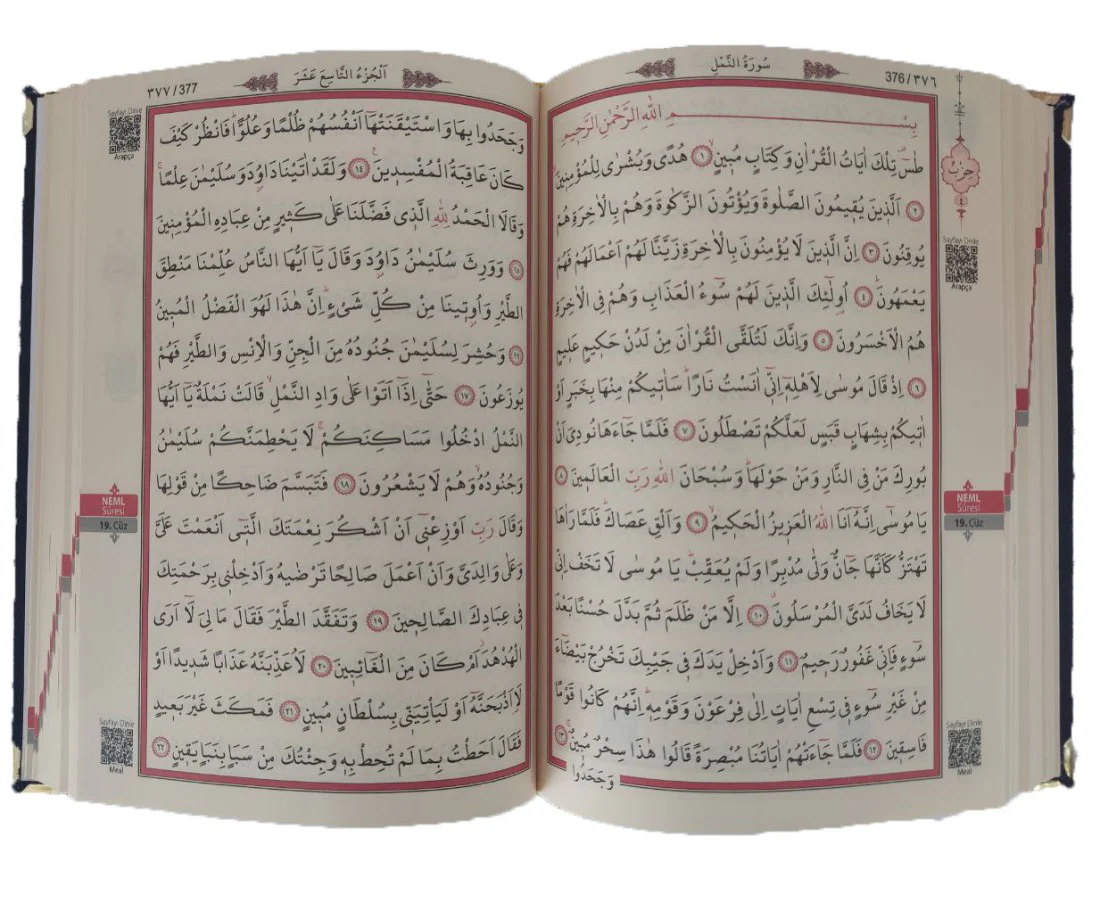 سُورَةُ النَّمْلِ
376/٣٧٦
بِسْــــمِ اللهِ الرَّحْمٰنِ الرَّحِيمِ
طٰسٓ تِلْكَ اٰيَاتُ الْقُرْاٰنِ وَكِتَابٍ مُبٖينٍۙ ﴿١﴾ هُدًى وَبُشْرٰى لِلْمُؤْمِنٖينَۙ
﴿٢﴾ اَلَّذٖينَ يُقٖيمُونَ الصَّلٰوةَ وَيُؤْتُونَ الزَّكٰوةَ وَهُمْ بِالْاٰخِرَةِ هُمْ
يُوقِنُونَ ﴿٣﴾ اِنَّ الَّذٖينَ لَا يُؤْمِنُونَ بِالْاٰخِرَةِ زَيَّنَّا لَهُمْ اَعْمَالَهُمْ فَهُمْ
يَعْمَهُونَۜ ﴿٤﴾ اُو۬لٰٓئِكَ الَّذٖينَ لَهُمْ سُٓوءُ الْعَذَابِ وَهُمْ فِي الْاٰخِرَةِ
هُمُ الْاَخْسَرُونَ ﴿٥﴾ وَاِنَّكَ لَتُلَقَّى الْقُرْاٰنَ مِنْ لَدُنْ حَكٖيمٍ عَلٖيمٍ
﴿٦﴾ اِذْ قَالَ مُوسٰى لِاَهْلِهٖٓ اِنّٖٓي اٰنَسْتُ نَارًاۜ سَاٰتٖيكُمْ مِنْهَا بِخَبَرٍ اَوْ
اٰتٖيكُمْ بِشِهَابٍ قَبَسٍ لَعَلَّكُمْ تَصْطَلُونَ ﴿٧﴾ فَلَمَّا جَٓاءَهَا نُودِيَ اَنْ
بُورِكَ مَنْ فِي النَّارِ وَمَنْ حَوْلَهَاۜ وَسُبْحَانَ اللهِ رَبِّ الْعَالَمٖينَ ﴿٨﴾
يَا مُوسٰٓى اِنَّهُٓ اَنَا اللهُ الْعَزٖيزُ الْحَكٖيمُۙ ﴿٩﴾ وَاَلْقِ عَصَاكَۜ فَلَمَّا رَاٰهَا
تَهْتَزُّ كَاَنَّهَا جَٓانٌّ وَلّٰى مُدْبِرًا وَلَمْ يُعَقِّبْۜ يَا مُوسٰى لَا تَخَفْ اِنّٖي
لَا يَخَافُ لَدَيَّ الْمُرْسَلُونَۗ ﴿١٠﴾ اِلَّا مَنْ ظَلَمَ ثُمَّ بَدَّلَ حُسْنًا بَعْدَ
سُٓوءٍ فَاِنّٖي غَفُورٌ رَحٖيمٌ ﴿١١﴾ وَاَدْخِلْ يَدَكَ فٖي جَيْبِكَ تَخْرُجْ بَيْضَٓاءَ
مِنْ غَيْرِ سُٓوءٍ فٖي تِسْعِ اٰيَاتٍ اِلٰى فِرْعَوْنَ وَقَوْمِهٖۜ اِنَّهُمْ كَانُوا قَوْمًا
فَاسِقٖينَ ﴿١٢﴾ فَلَمَّا جَٓاءَتْهُمْ اٰيَاتُنَا مُبْصِرَةً قَالُوا هٰذَا سِحْرٌ مُبٖينٌۚ ﴿١٣﴾
وَجَحَدُوا
حِزْب
٤
Sayfayı Dinle
Arapça
NEML
Sûresi
19. Cüz
Sayfayı Dinle
Meal
اَلْجُزْءُ التَّاسِعَ عَشَرَ
٣٧٧/377
وَجَحَدُوا بِهَا وَاسْتَيْقَنَتْهَٓا اَنْفُسُهُمْ ظُلْمًا وَعُلُوًّاۜ فَانْظُرْ كَيْفَ
كَانَ عَاقِبَةُ الْمُفْسِدٖينَ۟ ﴿١٤﴾ وَلَقَدْ اٰتَيْنَا دَاوُ۫دَ وَسُلَيْمٰنَ عِلْمًاۚ
وَقَالَا الْحَمْدُ لِلهِ الَّذٖي فَضَّلَنَا عَلٰى كَثٖيرٍ مِنْ عِبَادِهِ الْمُؤْمِنٖينَ
﴿١٥﴾ وَوَرِثَ سُلَيْمٰنُ دَاوُ۫دَ وَقَالَ يَٓا اَيُّهَا النَّاسُ عُلِّمْنَا مَنْطِقَ
الطَّيْرِ وَاُو۫تٖينَا مِنْ كُلِّ شَيْءٍۜ اِنَّ هٰذَا لَهُوَ الْفَضْلُ الْمُبٖينُ
﴿١٦﴾ وَحُشِرَ لِسُلَيْمٰنَ جُنُودُهُ مِنَ الْجِنِّ وَالْاِنْسِ وَالطَّيْرِ فَهُمْ
يُوزَعُونَ ﴿١٧﴾ حَتّٰٓى اِذَٓا اَتَوْا عَلٰى وَادِ النَّمْلِۙ قَالَتْ نَمْلَةٌ يَٓا اَيُّهَا
النَّمْلُ ادْخُلُوا مَسَاكِنَكُمْۚ لَا يَحْطِمَنَّكُمْ سُلَيْمٰنُ
وَجُنُودُهُۙ وَهُمْ لَا يَشْعُرُونَ ﴿١٨﴾ فَتَبَسَّمَ ضَاحِكًا مِنْ قَوْلِهَا
وَقَالَ رَبِّ اَوْزِعْنٖٓي اَنْ اَشْكُرَ نِعْمَتَكَ الَّتٖٓي اَنْعَمْتَ عَلَيَّ
وَعَلٰى وَالِدَيَّ وَاَنْ اَعْمَلَ صَالِحًا تَرْضٰيهُ وَاَدْخِلْنٖي بِرَحْمَتِكَ
فٖي عِبَادِكَ الصَّالِحٖينَ ﴿١٩﴾ وَتَفَقَّدَ الطَّيْرَ فَقَالَ مَا لِيَ لَٓا اَرَى
الْهُدْهُدَۘ اَمْ كَانَ مِنَ الْغَٓائِبٖينَ ﴿٢٠﴾ لَاُعَذِّبَنَّهُ عَذَابًا شَدٖيدًا اَوْ
لَا۬اَذْبَحَنَّهُٓ اَوْ لَيَاْتِيَنّٖي بِسُلْطَانٍ مُبٖينٍ ﴿٢١﴾ فَمَكَثَ غَيْرَ بَعٖيدٍ
فَقَالَ اَحَطْتُ بِمَا لَمْ تُحِطْ بِهٖ وَجِئْتُكَ مِنْ سَبَاٍ بِنَبَاٍ يَقٖينٍ ﴿٢٢﴾
Sayfayı Dinle
Arapça
NEML
Sûresi
19. Cüz
Sayfayı Dinle
Meal